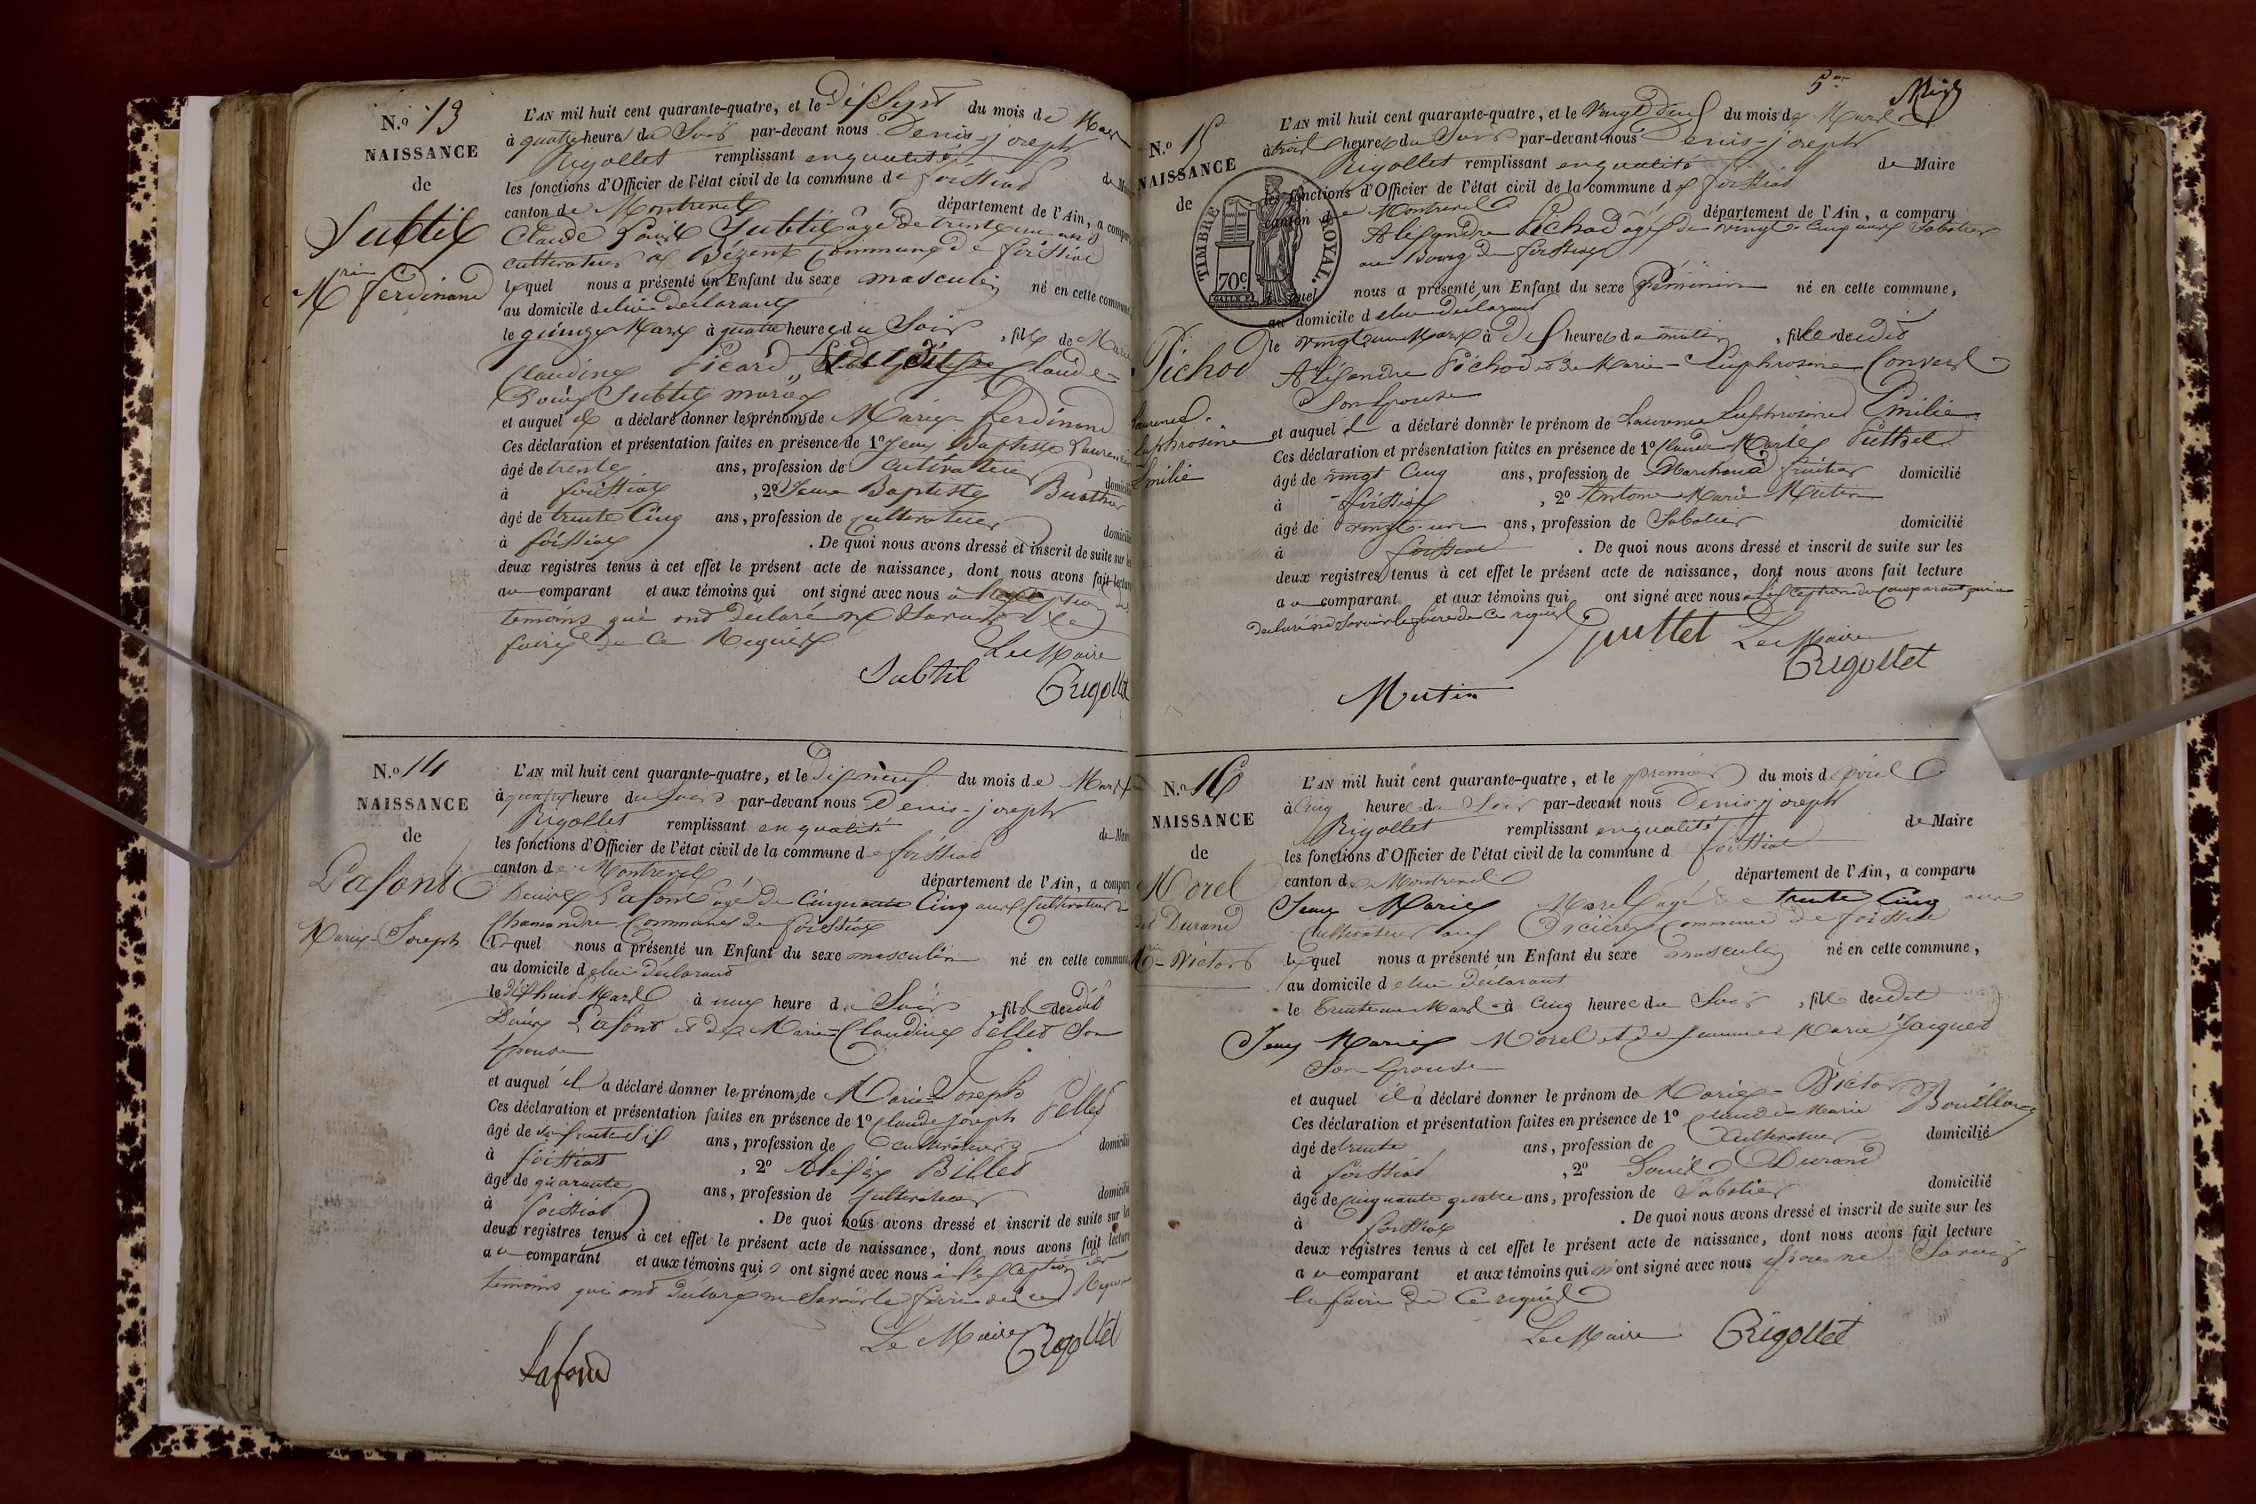 N.o 13
NAISSANCE
de
Subtil
Mrie ferdinand
L'AN mil huit cent quarante-quatre, et le dix sept du mois de Mars
à quatre heure du Soir par-devant nous Denis-joseph
Rigollet remplissant en qualité de Mai
les fonctions d'Officier de l'état civil de la commune de foissiat
canton de Montrevel département de l'Ain, a compar
Claude Louis Subtil agé de trente un ans
cultivateur a Bézent Commune de foissiat
lequel nous a présenté un Enfant du sexe masculin né en cette commune
au domicile de lui declarant
le quinze Mars à quatre heure du Soir, fils de Marie
Claudine Picard, Claude-
Louis Subtil mariés
et auquel il a déclaré donner les prénoms de Marie ferdinand
Ces déclaration et présentation faites en présence de 1o Jean Baptiste Laurencin
âgé de trente ans, profession de Cultivateur domicilié
à foissiat, 2o Jean Baptiste Buathier
âgé de trente Cinq ans, profession de Cultivateur domicilié
à foissiat. De quoi nous avons dressé et inscrit de suite sur les
deux registres tenus à cet effet le présent acte de naissance, dont nous avons fait lecture
au comparant et aux témoins qui ont signé avec nous a l'exception des
temoins qui ont declaré ne Savoir le
faire de Ce Requis
Le Maire
Subtil Rigollet
N.o 14
NAISSANCE
de
Lafont
Marie-Joseph
L'AN mil huit cent quarante-quatre, et le dix neuf du mois de Mars
à quatre heure du Soir par-devant nous Denis-joseph
Rigollet remplissant en qualité de Maire
les fonctions d'Officier de l'état civil de la commune de foissiat
canton de Montrevel département de l'Ain, a compar
Lafont agé de Cinquante Cinq ans Cultivateur a
Chamandre Commune de foissiat
lequel nous a présenté un Enfant du sexe masculin né en cette commune
au domicile de lui declarant
le dix huit Mars à une heure du Soir, fils de dit
Lafont et de Marie-Claudine Pellet Son
Epouse
et auquel il a déclaré donner le prénom de Marie-Joseph
Ces déclaration et présentation faites en présence de 1o Claude joseph Pellet
âgé de ans, profession de Cultivateur domicilié
à foissiat, 2o Alexis Billet
âgé de quarante ans, profession de Cultivateur domicilié
à foissiat. De quoi nous avons dressé et inscrit de suite sur les
deux registres tenus à cet effet le présent acte de naissance, dont nous avons fait lecture
au comparant et aux témoins qui ont signé avec nous a l'exception des
temoins qui ont déclaré ne Savoir le faire de ce Requis
Le Maire Rigollet
Lafond
5me
N.o 15
NAISSANCE
de
Pichod
Laurence
Euphrosine
Emilie
TIMBRE ROYAL.
70c
L'AN mil huit cent quarante-quatre, et le vingt deux du mois de Mars
à trois heure du Soir par-devant nous Denis-joseph
Rigollet remplissant en qualité de Maire
les fonctions d'Officier de l'état civil de la commune de foissiat
canton de Montrevel département de l'Ain, a comparu
Alexandre Pichod agé de vingt-Cinq ans Sabotier
au Bourg de foissiat
lequel nous a présenté un Enfant du sexe Féminin né en cette commune,
au domicile de lui declarant
le vingt un Mars à dix heure du matin, fille de dit
Alexandre Pichod et de Marie-Euphrosine Convert
Son Epouse
et auquel il a déclaré donner le prénom de Laurence Euphrosine Emilie
Ces déclaration et présentation faites en présence de 1o Claude Marie Puthet
âgé de vingt Cinq ans, profession de Marchand fruitier domicilié
à foissiat, 2o Antoine Marie Mutin
âgé de vingt-un ans, profession de Sabotier domicilié
à foissiat. De quoi nous avons dressé et inscrit de suite sur les
deux registres tenus à cet effet le présent acte de naissance, dont nous avons fait lecture
au comparant et aux témoins qui ont signé avec nous a l'exception du Comparant qui a
declaré ne Savoir le faire de Ce requis
Puttet Le Maire
Rigollet
Mutin
N.o 16
NAISSANCE
de
Morel
dit Durand
Mrie-Victor
L'AN mil huit cent quarante-quatre, et le premier du mois d'avril
à Cinq heure du Soir par-devant nous Denis-joseph
Rigollet remplissant en qualité de Maire
les fonctions d'Officier de l'état civil de la commune d foissiat
canton de Montrevel département de l'Ain, a comparu
Jean Marie Morel agé de trente Cinq ans
Cultivateur aux Commune de foissiat
lequel nous a présenté un Enfant du sexe masculin né en cette commune,
au domicile de lui declarant
le trente un Mars à Cinq heure du Soir, fils de dit
Jean Marie Morel et de Marie Jacquet
Son Epouse
et auquel il a déclaré donner le prénom de Marie-Victor
Ces déclaration et présentation faites en présence de 1o Claude-Marie Bouilloux
âgé de trente ans, profession de Cultivateur domicilié
à foissiat, 2o Louis Durand
âgé de Cinquante quatre ans, profession de Sabotier domicilié
à foissiat. De quoi nous avons dressé et inscrit de suite sur les
deux registres tenus à cet effet le présent acte de naissance, dont nous avons fait lecture
au comparant et aux témoins qui n'ont signé avec nous pour ne Savoir
le faire de Ce requis
Le Maire Rigollet